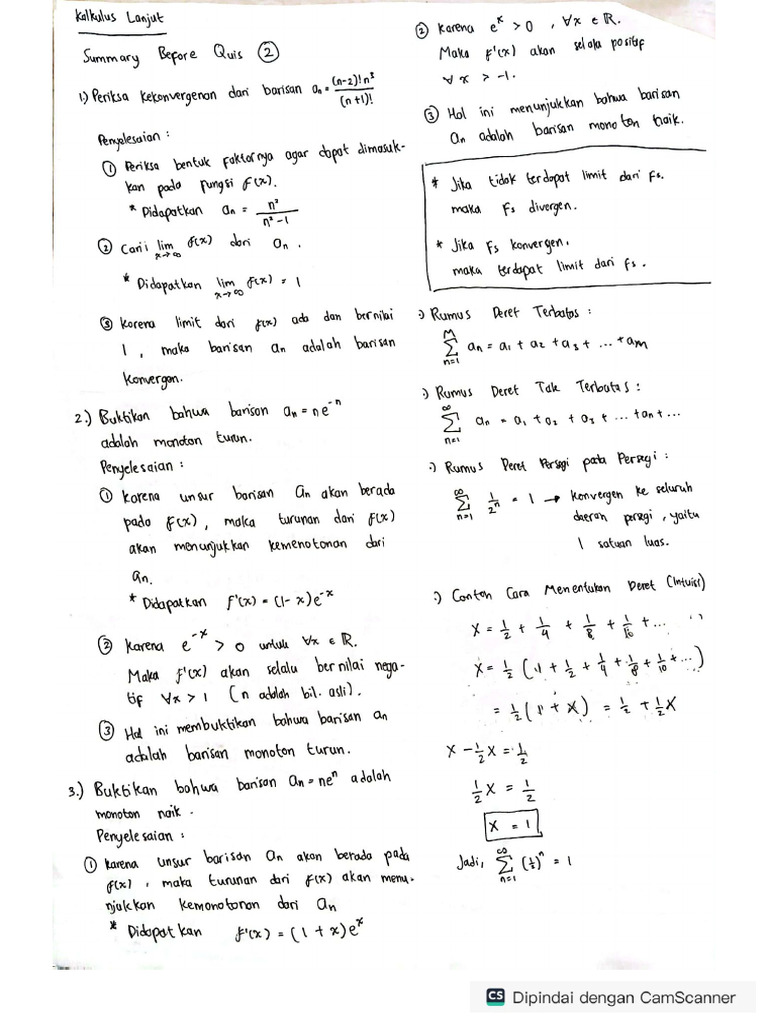 Kalkulus Lanjut
Summary Before Quis ②
1.) Periksa kekonvergenan dari barisan aₙ = (n-2)! n³ / (n+1)!
Penyelesaian :
① Periksa bentuk faktornya agar dapat dimasuk-
kan pada fungsi f(x).
* Didapatkan aₙ = n² / n²-1
② Cari lim x→∞ f(x) dari aₙ.
* Didapatkan lim x→∞ f(x) = 1
③ Karena limit dari f(x) ada dan bernilai
1, maka barisan an adalah barisan
konvergen.
2.) Buktikan bahwa barisan aₙ = ne⁻ⁿ
adalah monoton turun.
Penyelesaian :
① Karena unsur barisan an akan berada
pada f(x), maka turunan dari f(x)
akan menunjukkan kemenotonan dari
an.
* Didapatkan f'(x) = (1-x)e⁻ˣ
② Karena e⁻ˣ > 0 untuk ∀x ∈ ℝ.
Maka f'(x) akan selalu bernilai nega-
tif ∀x > 1 (n adalah bil. asli).
③ Hal ini membuktikan bahwa barisan an
adalah barisan monoton turun.
3.) Buktikan bahwa barisan aₙ = neⁿ adalah
monoton naik.
Penyelesaian :
① Karena unsur barisan an akan berada pada
f(x), maka turunan dari f(x) akan menu-
njukkan kemonotonan dari an
* Didapatkan f'(x) = (1 + x)eˣ
② Karena eˣ > 0, ∀x ∈ ℝ.
Maka f'(x) akan selalu positif
∀x > -1.
③ Hal ini menunjukkan bahwa barisan
an adalah barisan monoton naik.
* Jika tidak terdapat limit dari Fs.
maka Fs divergen.
* Jika Fs konvergen,
maka terdapat limit dari Fs.
·) Rumus Deret Terbatas :
M Σ n=1 aₙ = a₁ + a₂ + a₃ + ... + aₘ
·) Rumus Deret Tak Terbatas :
∞ Σ n=1 aₙ = a₁ + a₂ + a₃ + ... + an + ...
·) Rumus Deret Persegi pada Persegi :
∞ Σ n=1 1/2ⁿ = 1 → konvergen ke seluruh
daerah persegi, yaitu
1 satuan luas.
·) Contoh Cara Menentukan Deret (Intuisi)
X = 1/2 + 1/4 + 1/8 + 1/16 + ...
X = 1/2 (1 + 1/2 + 1/4 + 1/8 + 1/10 + ...)
= 1/2 (1 + X) = 1/2 + 1/2 X
X - 1/2 X = 1/2
1/2 X = 1/2
X = 1
Jadi, ∞ Σ n=1 (1/2)ⁿ = 1
CS Dipindai dengan CamScanner